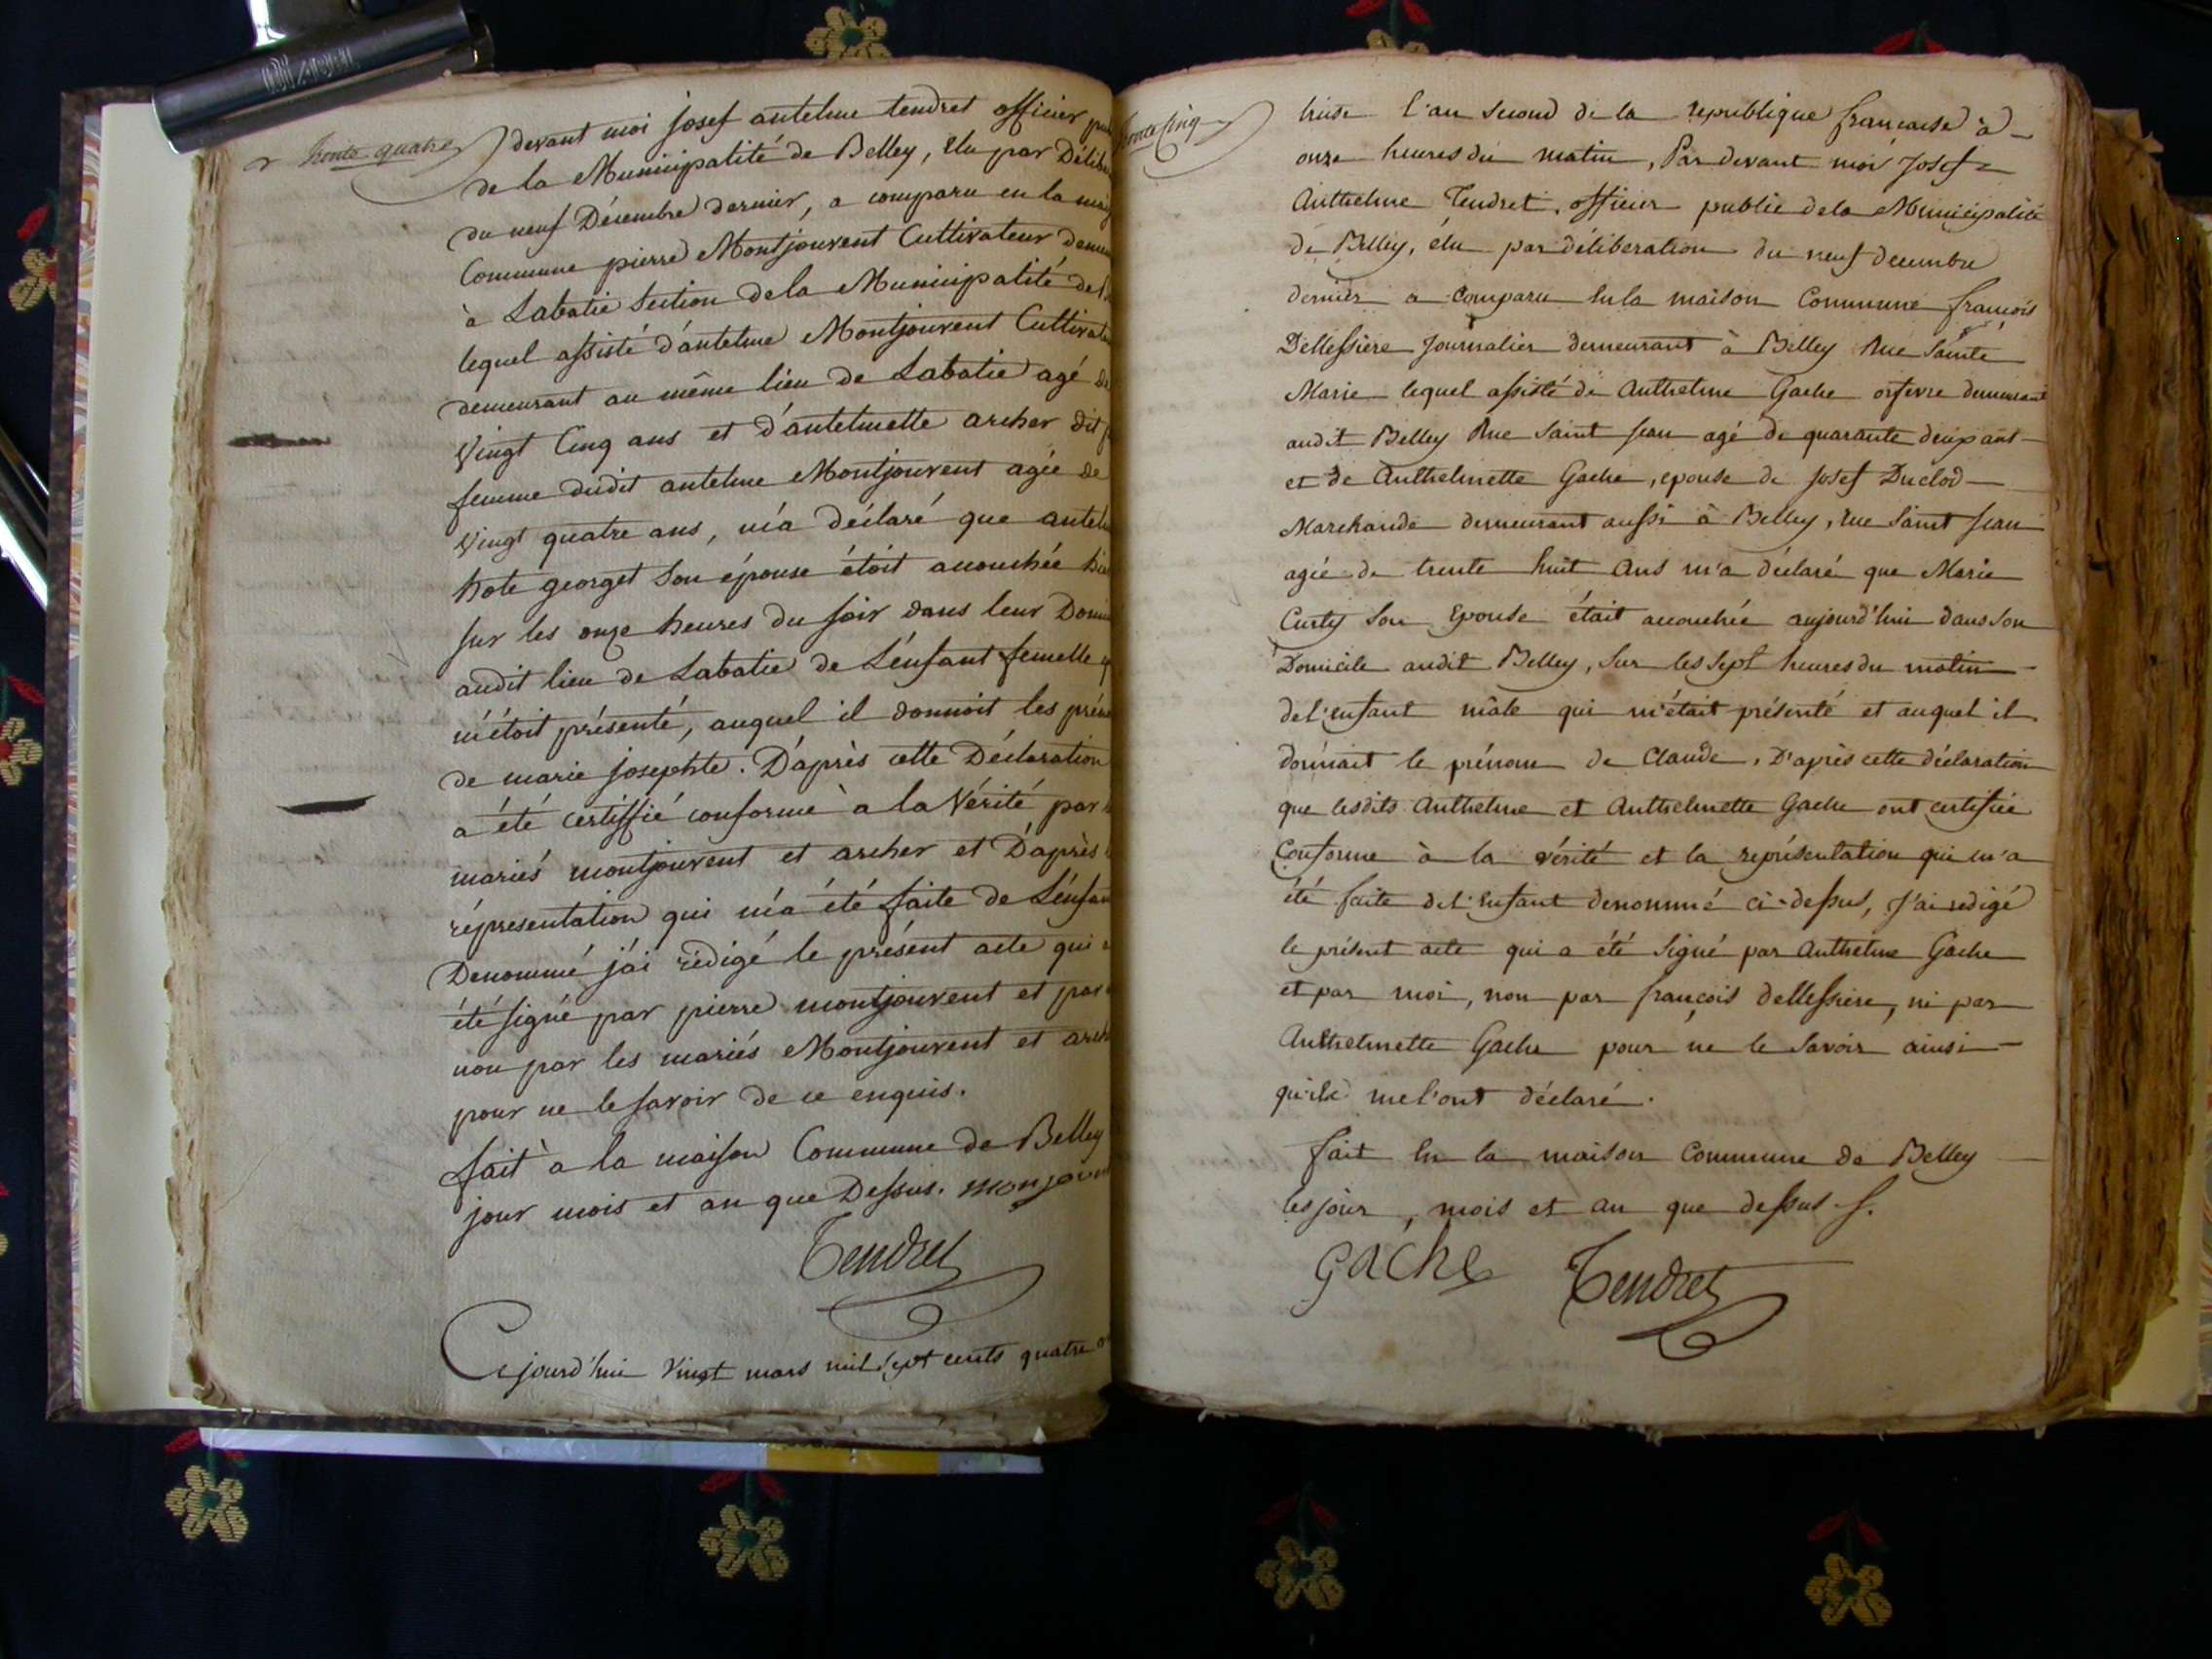 DIABEL
trente quatre
devant moi josef antelme tendret officier pu
de la Municipalité de Belley, élu par Délibé
du neuf Décembre dernier, a comparu en la mai
Commune pierre Montjouvent Cultivateur demeu
à Labatie Section de la Municipalité de B
lequel assisté d'antelme Montjouvent Cultivate
demeurant au même lieu de Labatie agé de
Vingt Cinq ans et d'antelmette archer dit
femme dudit antelme Montjouvent agée de
Vingt quatre ans, m'a déclaré que antel
hote georget Son épouse étoit accouchée hie
sur les onze heures du soir dans leur Domi
audit lieu de Labatie de L'enfant femelle q
m'étoit présenté, auquel il donnoit les préno
de marie josephte. D'après cette Déclaration
a été certiffié conforme à la Vérité par
mariés montjouvent et archer et D'après
réprésentation qui m'a été faite de L'enfan
Denommé j'ai rédigé le présent acte qui a
été signé par pierre montjouvent et par
non par les mariés Montjouvent et arch
pour ne le savoir de ce enquis.
fait à la maison Commune de Belley
jour mois et an que Dessus. monjouv
Tendret
Cejourd'hui Vingt mars mil sept cents quatre
trente cinq
treise l'an Second de la republique francaise à
onze heures du matin, Par devant moi Josef
Anthelme Tendret, officier public de la Municipalité
de Belley, élu par déliberation du neuf decembre
dernier a Comparu En la maison Commune françois
Dellessiere Journalier demeurant à Belley Rue Sainte
Marie lequel assisté de Anthelme Gache orfevre demeurant
audit Belley Rue Saint Jean agé de quarante deux ans
et de Anthelmette Gache, epouse de Josef Duclos
Marchande demeurant aussi à Belley, rue Saint Jean
agée de trente huit Ans m'a déclaré que Marie
Curty Son Epouse était accouchée aujourd'hui dans son
Domicile audit Belley, Sur les Sept heures du matin
de l'enfant mâle qui m'était présenté et auquel il
donnait le prénom de Claude, D'après cette déclaration
que lesdits Anthelme et Anthelmette Gache ont certifiée
Conforme à la vérité et la représentation qui m'a
été faite de l'Enfant denommé ci-dessus, J'ai redigé
le présent acte qui a été Signé par Anthelme Gache
et par moi, non par françois dellessiere, ni par
Anthelmette Gache pour ne le Savoir ainsi
qu'ils me l'ont déclaré.
fait En la maison Commune de Belley
les jour, mois et an que dessus
Gache Tendret